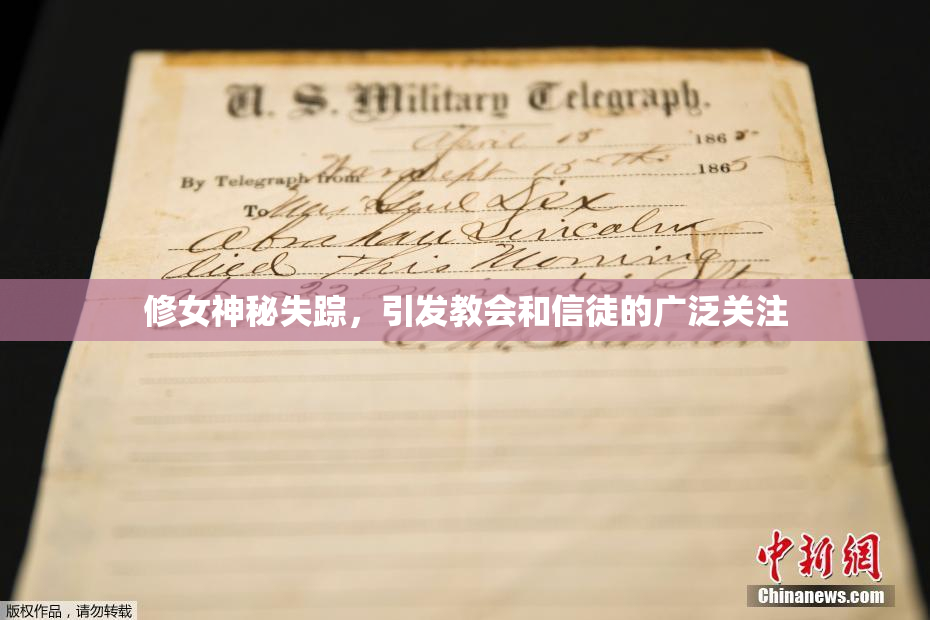 U. S. Military Telegraph.
April 15 1865
By Telegraph from War Dept 15th 1865
To Maj Genl Dix
Abraham Lincoln
died This Morning
at 22 minutes after
修女神秘失踪，引发教会和信徒的广泛关注
E. M. Stanton
中新网
版权作品，请勿转载
Chinanews.com